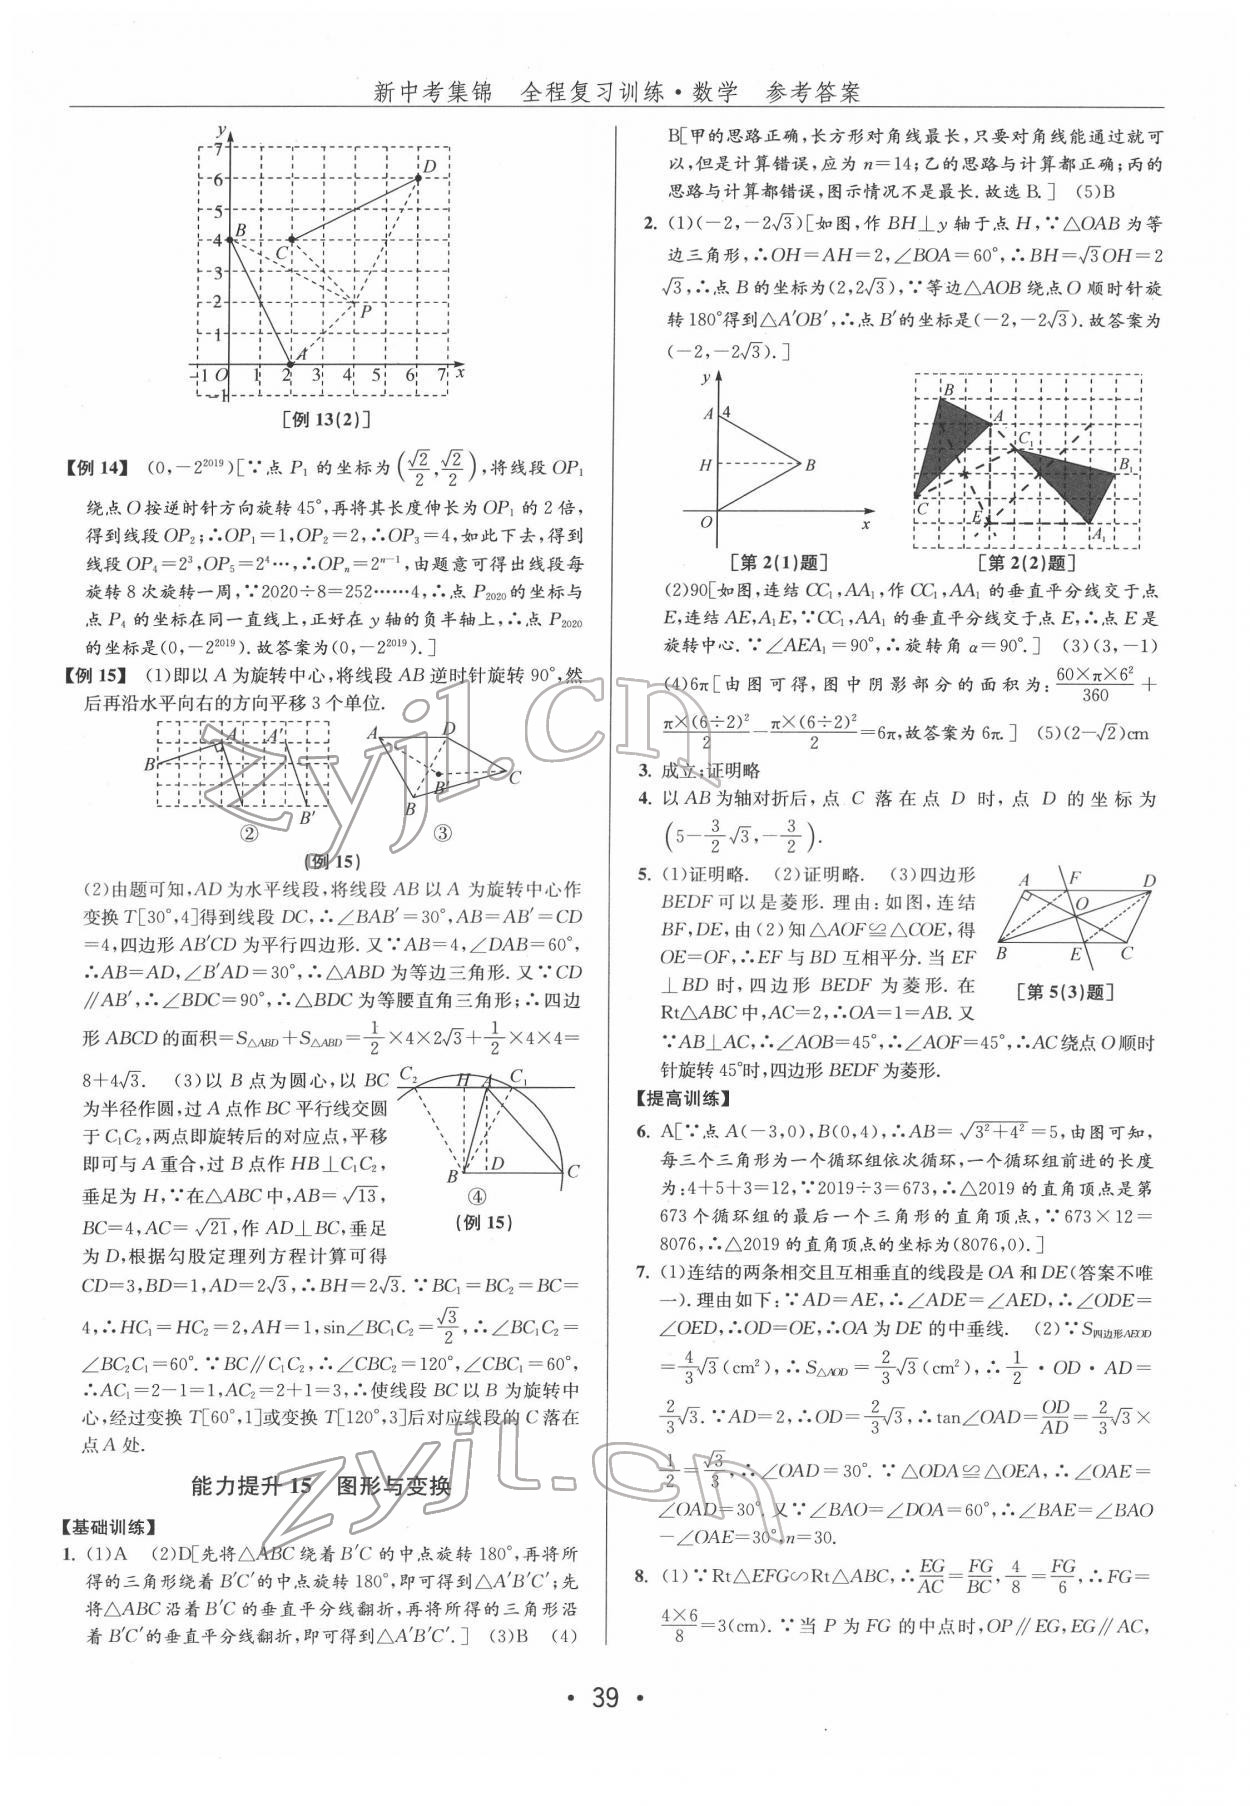 新中考集锦　全程复习训练·数学　参考答案
y
7
6
5
4
3
2
1
-1 O 1 2 3 4 5 6 7 x
-1
B
C
D
P
A
[例 13(2)]
【例 14】 (0,-2²⁰¹⁹)[∵点 P₁ 的坐标为(√2/2,√2/2),将线段 OP₁
绕点 O 按逆时针方向旋转 45°,再将其长度伸长为 OP₁ 的 2 倍,
得到线段 OP₂;∴OP₁=1,OP₂=2,∴OP₃=4,如此下去,得到
线段 OP₄=2³,OP₅=2⁴…,∴OPₙ=2ⁿ⁻¹,由题意可得出线段每
旋转 8 次旋转一周,∵2020÷8=252……4,∴点 P₂₀₂₀的坐标与
点 P₄ 的坐标在同一直线上,正好在 y 轴的负半轴上,∴点 P₂₀₂₀
的坐标是(0,-2²⁰¹⁹).故答案为(0,-2²⁰¹⁹).]
【例 15】 (1)即以 A 为旋转中心,将线段 AB 逆时针旋转 90°,然
后再沿水平向右的方向平移 3 个单位.
B A A′ B′
②
A D B′ C B
③
(例 15)
(2)由题可知,AD 为水平线段,将线段 AB 以 A 为旋转中心作
变换 T[30°,4]得到线段 DC,∴∠BAB′=30°,AB=AB′=CD
=4,四边形 AB′CD 为平行四边形.又∵AB=4,∠DAB=60°,
∴AB=AD,∠B′AD=30°,∴△ABD 为等边三角形.又∵CD
∥AB′,∴∠BDC=90°,∴△BDC 为等腰直角三角形;∴四边
形 ABCD 的面积=S△ABD+S△ABD=1/2×4×2√3+1/2×4×4=
8+4√3. (3)以 B 点为圆心,以 BC
为半径作圆,过 A 点作 BC 平行线交圆
于 C₁C₂,两点即旋转后的对应点,平移
即可与 A 重合,过 B 点作 HB⊥C₁C₂,
垂足为 H,∵在△ABC 中,AB=√13,
BC=4,AC=√21,作 AD⊥BC,垂足
为 D,根据勾股定理列方程计算可得
C₂ H A C₁
B D C
④
(例 15)
CD=3,BD=1,AD=2√3,∴BH=2√3.∵BC₁=BC₂=BC=
4,∴HC₁=HC₂=2,AH=1,sin∠BC₁C₂=√3/2,∴∠BC₁C₂=
∠BC₂C₁=60°.∵BC∥C₁C₂,∴∠CBC₂=120°,∠CBC₁=60°,
∴AC₁=2-1=1,AC₂=2+1=3,∴使线段 BC 以 B 为旋转中
心,经过变换 T[60°,1]或变换 T[120°,3]后对应线段的 C 落在
点 A 处.
能力提升 15　图形与变换
【基础训练】
1. (1)A (2)D[先将△ABC 绕着 B′C 的中点旋转 180°,再将所
得的三角形绕着 B′C′的中点旋转 180°,即可得到△A′B′C′;先
将△ABC 沿着 B′C 的垂直平分线翻折,再将所得的三角形沿
着 B′C′的垂直平分线翻折,即可得到△A′B′C′.] (3)B (4)
B[甲的思路正确,长方形对角线最长,只要对角线能通过就可
以,但是计算错误,应为 n=14;乙的思路与计算都正确;丙的
思路与计算都错误,图示情况不是最长.故选 B.] (5)B
2. (1)(-2,-2√3)[如图,作 BH⊥y 轴于点 H,∵△OAB 为等
边三角形,∴OH=AH=2,∠BOA=60°,∴BH=√3OH=2
√3,∴点 B 的坐标为(2,2√3),∵等边△AOB 绕点 O 顺时针旋
转 180°得到△A′OB′,∴点 B′的坐标是(-2,-2√3).故答案为
(-2,-2√3).]
y
A 4
H B
O x
[第 2(1)题]
B A C₁ B₁
C E A₁
[第 2(2)题]
(2)90[如图,连结 CC₁,AA₁,作 CC₁,AA₁ 的垂直平分线交于点
E,连结 AE,A₁E,∵CC₁,AA₁ 的垂直平分线交于点 E,∴点 E 是
旋转中心.∵∠AEA₁=90°,∴旋转角 α=90°.] (3)(3,-1)
(4)6π[由图可得,图中阴影部分的面积为:60×π×6²/360+
π×(6÷2)²/2-π×(6÷2)²/2=6π,故答案为 6π.] (5)(2-√2)cm
3. 成立;证明略
4. 以 AB 为轴对折后,点 C 落在点 D 时,点 D 的坐标为
(5-3/2√3,-3/2).
5. (1)证明略. (2)证明略. (3)四边形
BEDF 可以是菱形.理由:如图,连结
BF,DE,由(2)知△AOF≌△COE,得
OE=OF,∴EF 与 BD 互相平分.当 EF
⊥BD 时,四边形 BEDF 为菱形.在
Rt△ABC 中,AC=2,∴OA=1=AB.又
A F D
O
B E C
[第 5(3)题]
∵AB⊥AC,∴∠AOB=45°,∴∠AOF=45°,∴AC 绕点 O 顺时
针旋转 45°时,四边形 BEDF 为菱形.
【提高训练】
6. A[∵点 A(-3,0),B(0,4),∴AB=√3²+4²=5,由图可知,
每三个三角形为一个循环组依次循环,一个循环组前进的长度
为:4+5+3=12,∵2019÷3=673,∴△2019 的直角顶点是第
673 个循环组的最后一个三角形的直角顶点,∵673×12=
8076,∴△2019 的直角顶点的坐标为(8076,0).]
7. (1)连结的两条相交且互相垂直的线段是 OA 和 DE(答案不唯
一).理由如下:∵AD=AE,∴∠ADE=∠AED,∴∠ODE=
∠OED,∴OD=OE,∴OA 为 DE 的中垂线. (2)∵S四边形AEOD
=4/3√3(cm²),∴S△AOD=2/3√3(cm²),∴1/2·OD·AD=
2/3√3.∵AD=2,∴OD=2/3√3,∴tan∠OAD=OD/AD=2/3√3×
1/2=√3/3,∴∠OAD=30°.∵△ODA≌△OEA,∴∠OAE=
∠OAD=30°.又∵∠BAO=∠DOA=60°,∴∠BAE=∠BAO
-∠OAE=30°,n=30.
8. (1)∵Rt△EFG∽Rt△ABC,∴EG/AC=FG/BC,4/8=FG/6,∴FG=
4×6/8=3(cm).∵当 P 为 FG 的中点时,OP∥EG,EG∥AC,
· 39 ·
zyjl.cn
zyjl.cn